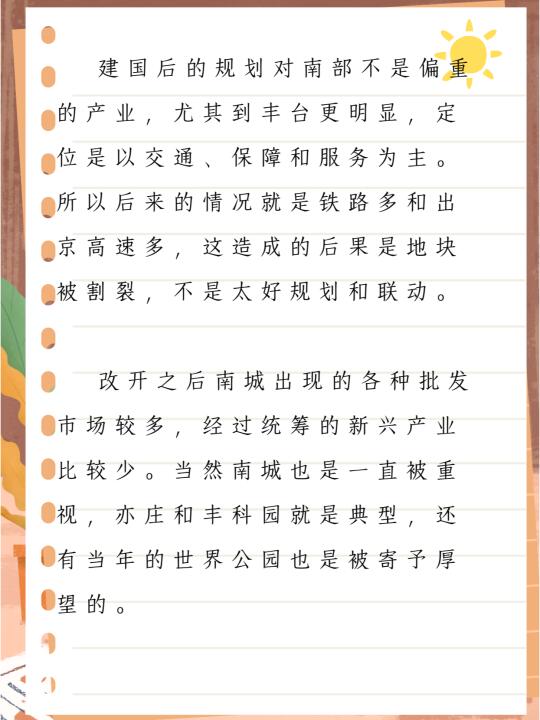 建国后的规划对南部不是偏重
的产业，尤其到丰台更明显，定
位是以交通、保障和服务为主。
所以后来的情况就是铁路多和出
京高速多，这造成的后果是地块
被割裂，不是太好规划和联动。
改开之后南城出现的各种批发
市场较多，经过统筹的新兴产业
比较少。当然南城也是一直被重
视，亦庄和丰科园就是典型，还
有当年的世界公园也是被寄予厚
望的。